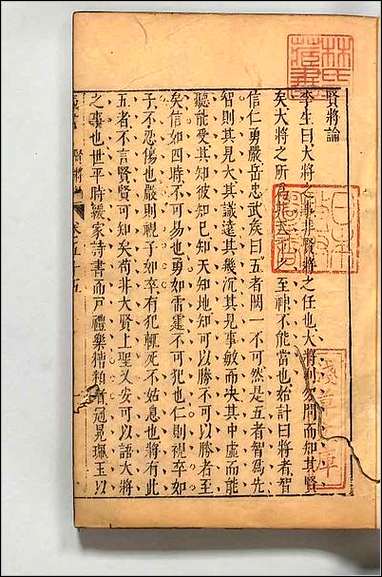 賢將論
李生曰大將之事非賢將之任也大將則勿問而知其賢
矣大將之所為非天下之至神不能當也始計曰將者智
信仁勇嚴岳忠武矣曰五者闕一不可然是五者智為先
智則其見大其識遠其幾沉其見事敏而決其中虛而能
聽能受其知彼知已知天知地知可以勝不可以勝而信
矣信如四時不可易也勇如雷霆不可犯也仁則視卒如
子不忍傷也嚴則視子如卒有犯輒死不姑息也將有此
五者不言賢賢可知矣苟非大賢上聖又安可以語大將
之事也世平時緩家詩書而戶禮樂僃
冠冕珮玉以
賢將
林氏藏書
淺草文庫